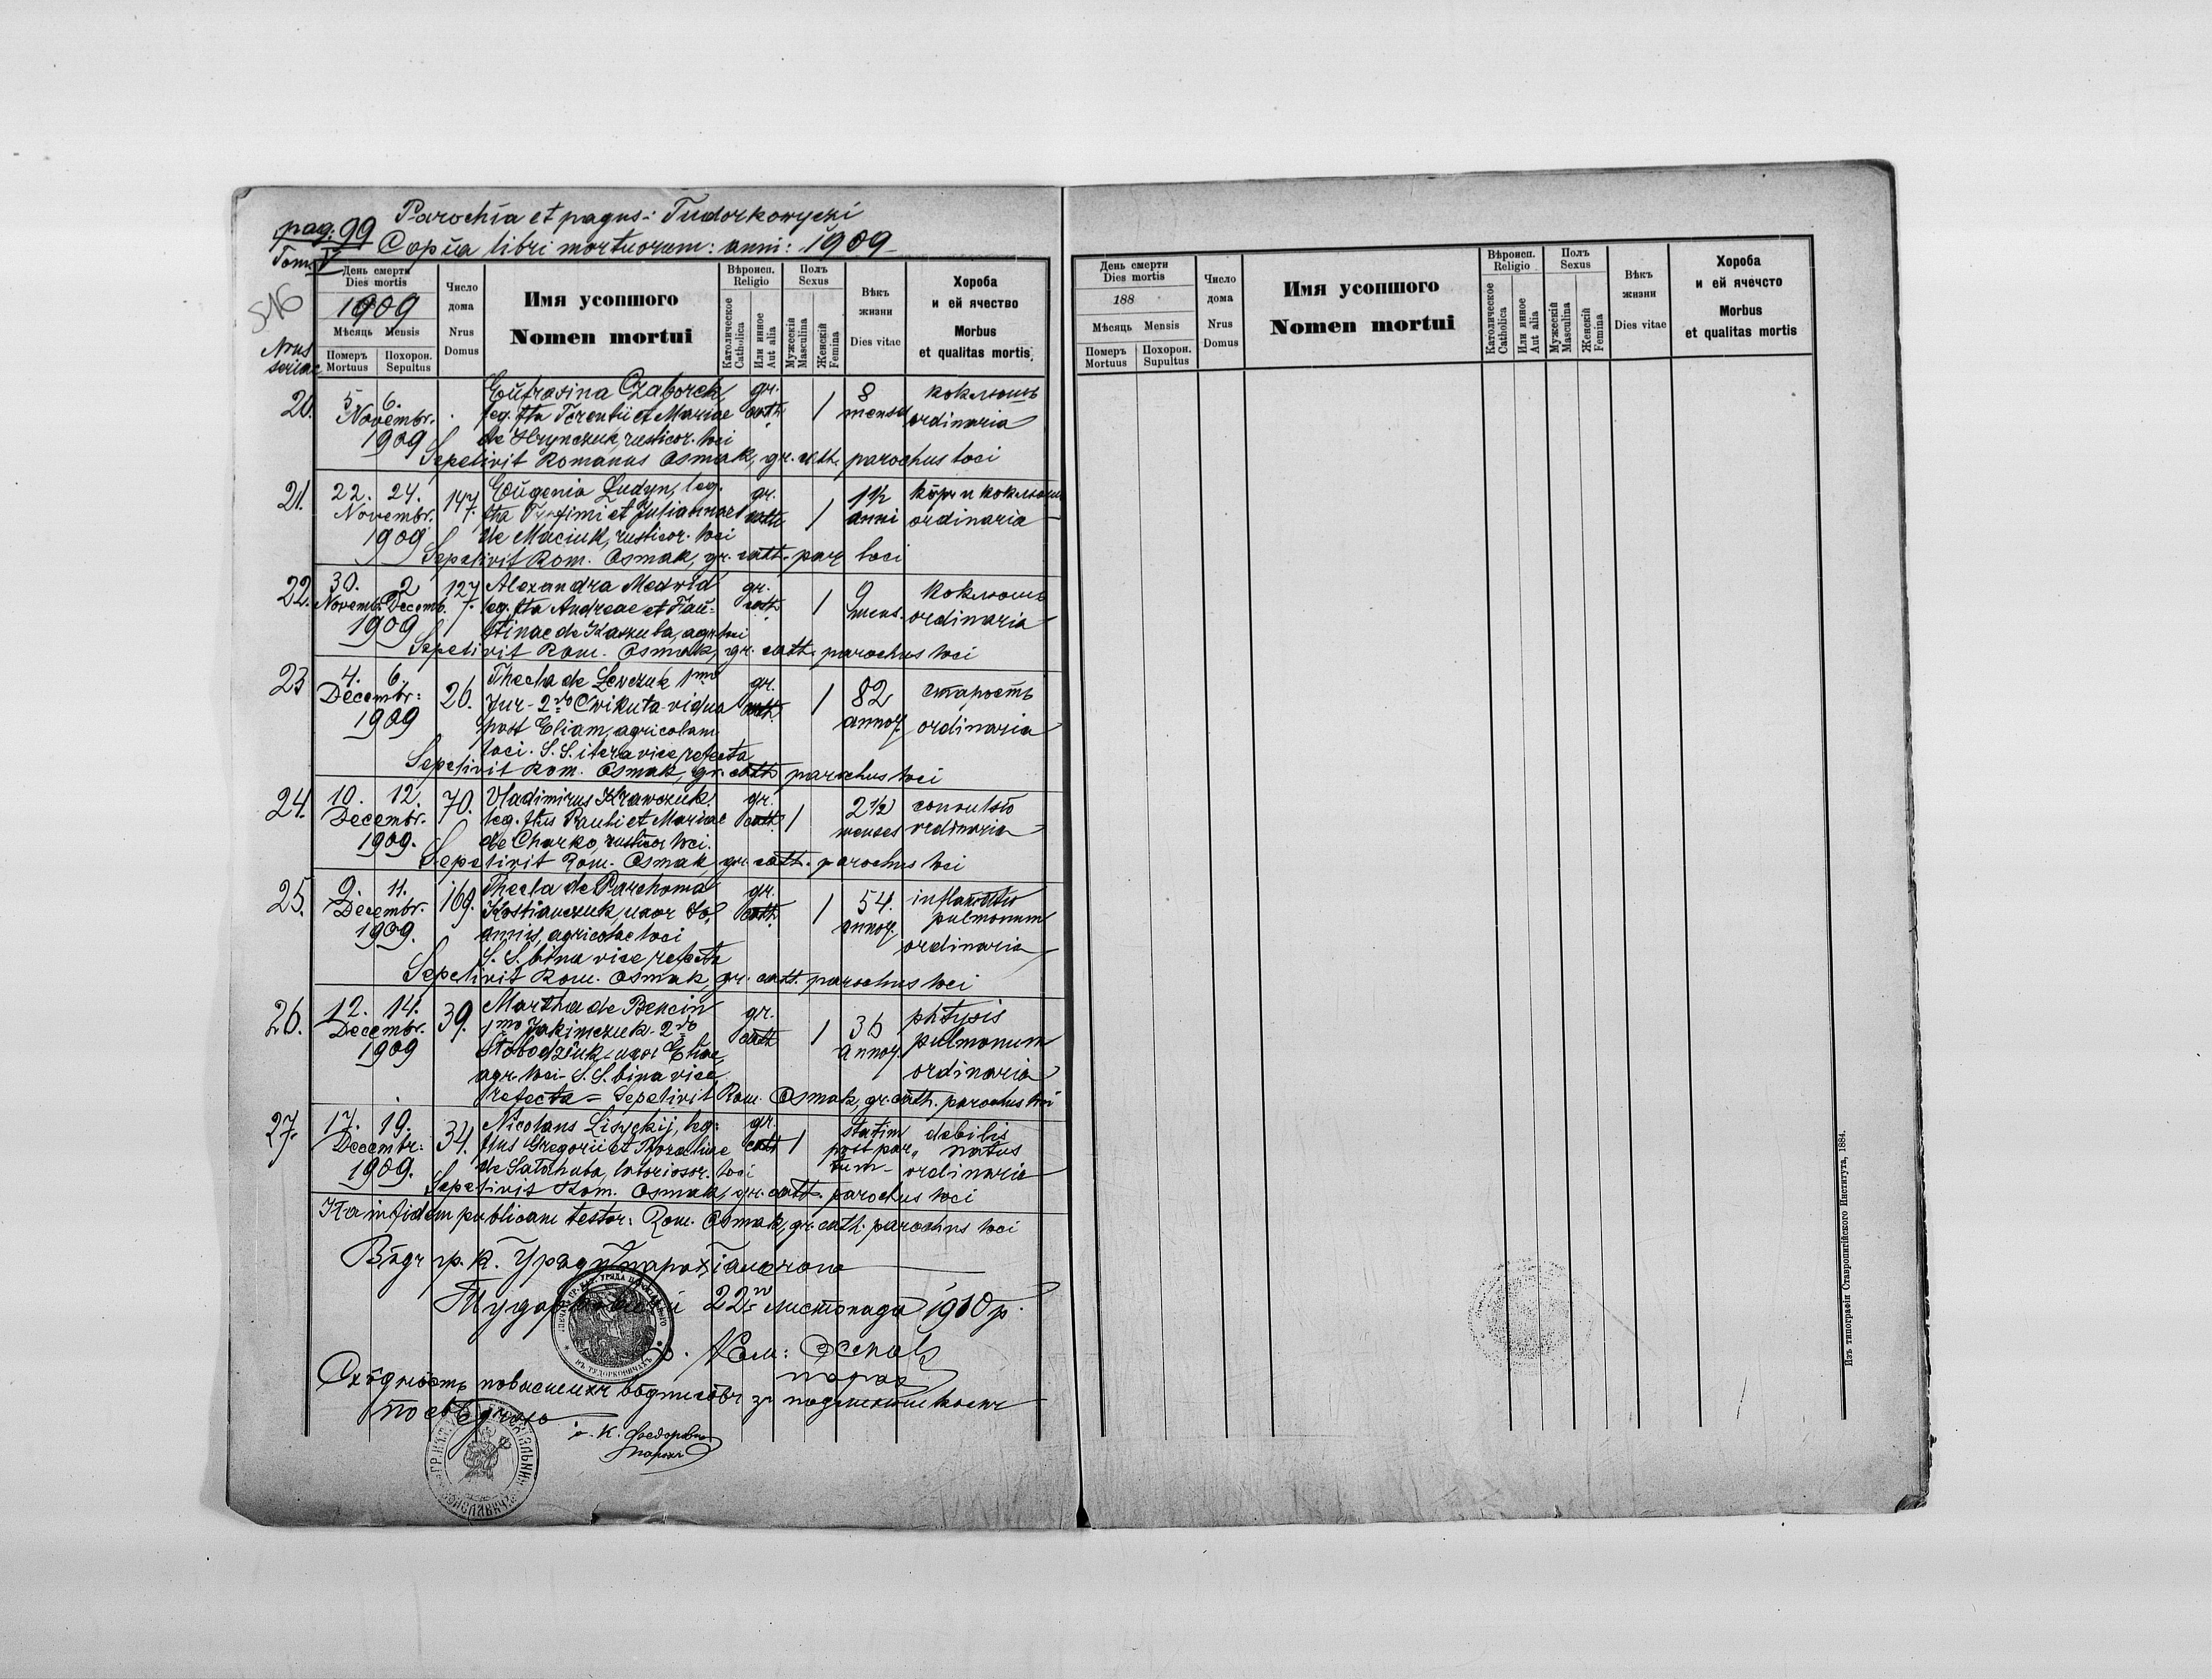 Parochia et pagus: Tudorkowyczi
pag. 99 Copia libri mortuorum: anni: 1909
Tom. V
546
Nrus seriae
День смерти
Dies mortis
1909
Мѣсяць Mensis
Померъ Mortuus
Похорон. Sepultus
Число дома
Nrus Domus
Имя усопшого
Nomen mortui
Вѣроисп. Religio
Католическое Catholica
Или инное Aut alia
Полъ Sexus
Мужескій Masculina
Женскій Femina
Вѣкъ жизни
Dies vitae
Хороба и ей ячество
Morbus et qualitas mortis
20. 5. 6. Eufrosina Czaborek, gr. 1 8 коклюшъ
Novembr. leg. fta Terentii et Mariae cath. mens. ordinaria
1909 de Hrynczuk, rusticor. loci
Sepelivit Romanus Osmak, gr. cath. parochus loci
21. 22. 24. 147. Eugenia Ludyn, leg. gr. 1 1½ кôръ и коклюшъ
Novembr. fta Trofimi et Juliannae cath. anni ordinaria
1909 de Maciuk, rusticor. loci
Sepelivit Rom. Osmak, gr. cath. par. loci
22. 30. 2 127. Alexandra Medwid gr. 1 9 коклюшъ
Novemb. Decemb. leg. fta Andreae et Fau- cath. mens. ordinaria
1909 stinae de Kaszuba, agr. loci
Sepelivit Rom. Osmak, gr. cath. parochus loci
23 4. 6. 26. Thecla de Levczuk 1mo gr. 1 82 старость
Decembr: Jur- 2do Cwikuta vidua cath. annor. ordinaria
1909 post Eliam, agricolam
loci. S. S. itera vice refecta
Sepelivit Rom. Osmak, gr. cath. parochus loci
24. 10. 12. 70. Vladimirus Krawczuk. gr. 1 2½ convulsio
Decembr. leg. ftus Pauli et Mariae cath. menses ordinaria
1909. de Charko, rusticor loci.
Sepelivit Rom. Osmak, gr. cath. parochus loci
25. 9. 11. 169. Thecla de Parchoma gr. 1 54. inflamatio
Decembr. Kostianczuk, uxor Jo, cath. annor. pulmonum
1909. annis, agricolae loci ordinaria
S. S. bina vice refecta
Sepelivit Rom. Osmak, gr. cath. parochus loci
26. 12. 14. 39. Martha de Bencin gr. 1 36 phtysis
Decembr. 1mo Jakimczuk- 2do cath annor. pulmonum
1909 Stobodziuk- uxor Eliae, ordinaria
agr. loci- S. S. bina vice
refecta = Sepelivit Rom. Osmak, gr. cath. parochus loci
27. 17. 19. 34. Nicolaus Lisyckij, leg: gr. 1 statim debilis
Decembr: ftus Gregorii et Rozaliae cath post par„ natus
1909. de Satahuba, laboriosor. loci tum- ordinaria
Sepelivit Rom. Osmak, gr. cath. parochus loci
Ita in fidem publicam testor: Rom. Osmak, gr. cath. parochus loci
Вôдъ гр. к. Уряду парохіяльного
22го листопада 1910 р.
Ром: Осмакъ
парох
Сходность повысшихъ вôдписôвъ зъ
посвѣдчаю
о. К. Федорович
парохъ
ВЪ ТУДОРКОВИЧАХЪ
День смерти
Dies mortis
188
Мѣсяць Mensis
Померъ Mortuus
Похорон. Supultus
Число дома
Nrus Domus
Имя усопшого
Nomen mortui
Вѣроисп. Religio
Католическое Catholica
Или инное Aut alia
Полъ Sexus
Мужескій Masculina
Женскій Femina
Вѣкъ жизни
Dies vitae
Хороба и ей ячечсто
Morbus et qualitas mortis
Изъ типографіи Ставропигійского Института, 1884.